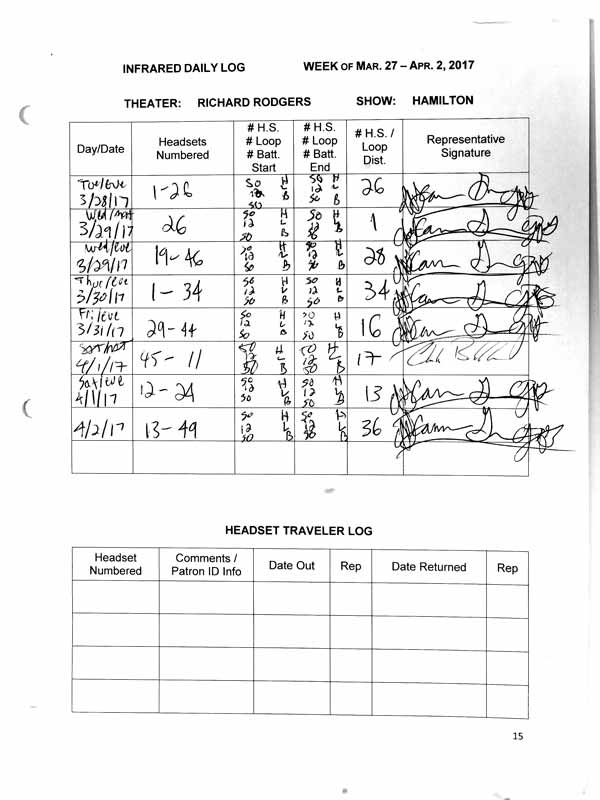 INFRARED DAILY LOG WEEK OF MAR. 27 – APR. 2, 2017
THEATER: RICHARD RODGERS SHOW: HAMILTON
Day/Date Headsets Numbered # H.S. # Loop # Batt. Start # H.S. # Loop # Batt. End # H.S. / Loop Dist. Representative Signature
Tue/Eve 3/28/17 1-26 50 H 12 L 50 B 50 H 12 L 50 B 26
Wed/Mat 3/29/17 26 50 H 12 L 50 B 50 H 12 L 50 B 1
Wed/Eve 3/29/17 19-46 50 H 12 L 50 B 50 H 12 L 50 B 28
Thur/Eve 3/30/17 1-34 50 H 12 L 50 B 50 H 12 L 50 B 34
Fri/Eve 3/31/17 29-44 50 H 12 L 50 B 50 H 12 L 50 B 16
Sat/Mat 4/1/17 45-11 50 H 12 L 50 B 50 H 12 L 50 B 17
Sat/Eve 4/1/17 12-24 50 H 12 L 50 B 50 H 12 L 50 B 13
4/2/17 13-49 50 H 12 L 50 B 50 H 12 L 50 B 36
HEADSET TRAVELER LOG
Headset Numbered Comments / Patron ID Info Date Out Rep Date Returned Rep
15